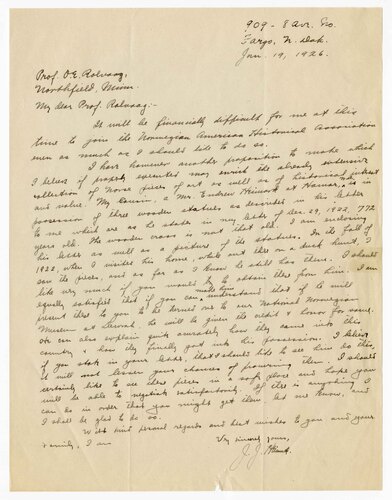 909 - 8 Ave. So.
Fargo, N. Dak.
Jan. 19, 1926.
Prof. O.E. Rolvaag,
Northfield, Minn.
My dear Prof. Rolvaag:-
It will be financially difficult for me at this
time to join the Norwegian American Historical Association
even as much as I should like to do so.
I have however another proposition to make which
I believe if properly executed may enrich the already extensive
collection of Norse pieces of art as well as of historical interest
and value. My cousin, a Mr. Endrew at Hannaf, is in
possession of three wooden statues, as described in his letter
to me which are as he states in my letter of Dec. 29, 1922, 772
years old. The wooden cross is not that old. I am enclosing
his letter as well as a picture of the statues. In the fall of
1922, when I visited his home, while out there on a duck hunt, I
saw the pieces, and as far as I know he still has them. I should
like very much if you would try to obtain them from him. I am
equally satisfied that if you can make him understand that if he will
present them to you to be turned over to our National Norwegian
Museum at Decorah, he will be given the credit & honor for same.
He can also explain quite accurately how they came into this
country & how they finally got into his possession. I believe
if you state in your letter, that I should like to see him do this,
it will not lessen your chances of procuring them. I should
certainly like to see these pieces in a safe place and hope you
will be able to negotiate satisfactorily. If there is anything I
can do in order that you might get them, let me know, and
I shall be glad to do so.
With kind personal regards and best wishes to you and your
family, I am
Very sincerely yours,
J. J.